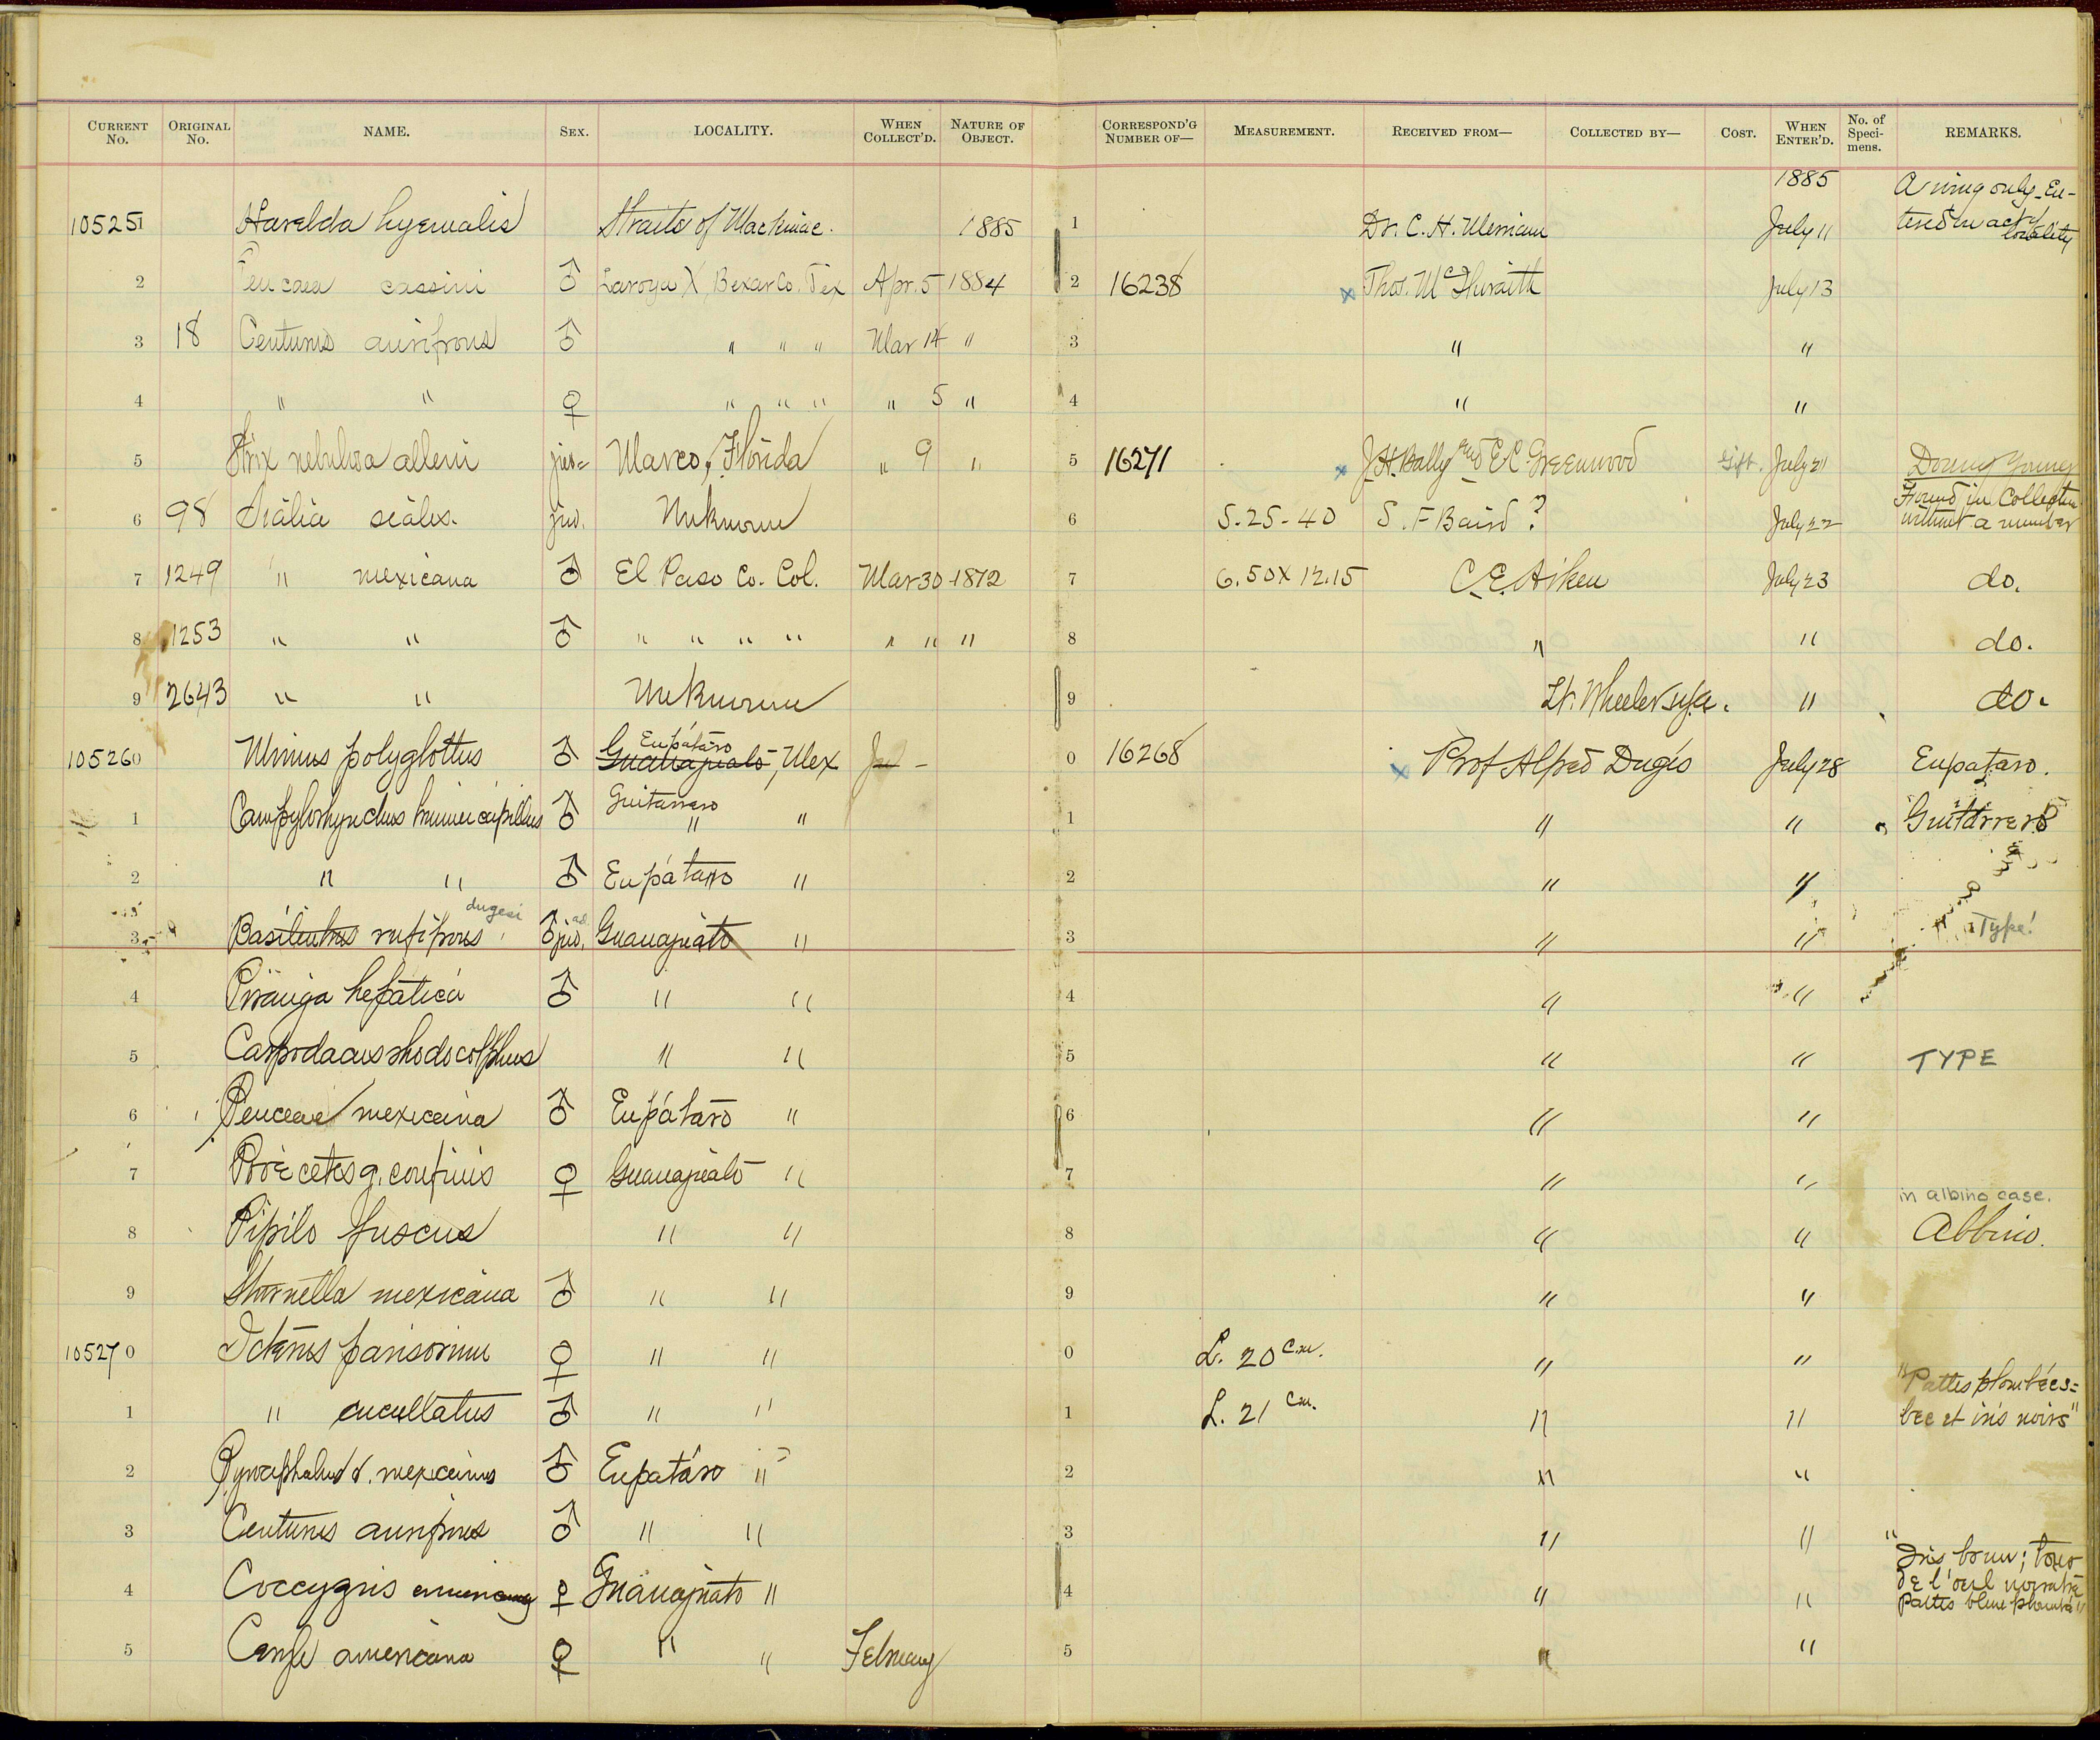 CURRENT No. ORIGINAL No. NAME. SEX. LOCALITY. WHEN COLLECT'D. NATURE OF OBJECT. CORRESPOND'G NUMBER OF— MEASUREMENT. RECEIVED FROM— COLLECTED BY— COST. WHEN ENTER'D. No. of Speci-mens. REMARKS.
1885 A wing only_En-
105251 Harelda hyemalis Straits of Mackinac. 1885 1 Dr. C. H. Merriam July 11 tered on acct of locality
2 Peucaea cassini ♂ X, Bexar Co. Tex Apr. 5 1884 2 16238 x Thos. McIlwraith July 13
3 18 Centurus aurifrons ♂ " " " Mar 14 " 3 " "
4 " " ♀ " " " " 5 " 4 " "
5 Strix nebulosa alleni juv= Marco, Florida " 9 " 5 16271 x J.H. Batty and E.C. Greenwood Gift. July 21 Downy young
6 98 Sialia sialis. juv. Unknown 6 5.25-40 S. F Baird ? July 22 Found in Collection without a number
7 1249 " mexicana ♂ El Paso Co. Col. Mar 30 1872 7 6.50 X 12.15 C.E. Aiken July 23 do.
8 1253 " " ♂ " " " " " " " 8 " " do.
9 2643 " " Unknown 9 Lt. Wheeler " do.
105260 Mimus polyglottus ♂ Eupátaro Guanajuato, Mex Jul - 0 16268 x Prof Alfred Dugès July 28 Eupataro.
1 Campylorhynchus brunneicapillus ♂ Guitarrero " " 1 " " Guitarrero
2 " " ♂ Eupátaro " 2 " "
dugesi
3 Basileuterus rufifrons ♂ juv. ad. Guanajuato " 3 " " Type!
4 Piranga hepatica ♂ " " 4 " "
5 Carpodacus rhodocolpus " " 5 " " TYPE
6 Peucaea mexicana ♂ Eupátaro " 6 " "
7 Pooecetes g. confinis ♀ Guanajuato " 7 " "
in albino case.
8 Pipilo fuscus " " 8 " " Albino.
9 Sturnella mexicana ♂ " " 9 " "
105270 Icterus parisorum ♀ " " 0 L. 20 cm. " "
1 " cucullatus ♂ " " 1 L. 21 cm. " " "Pattes plombées= bec et iris noirs"
2 Pyrocephalus r. mexicanus ♂ Eupatáro " 2 " "
3 Centurus aurifrons ♂ " " 3 " "
4 Coccygus americanus ♀ Guanajuato " 4 " " "Iris brun; tour de l'oeil noiratre Pattes bleue plombé"
5 Certhia americana ♀ " " February 5 " "